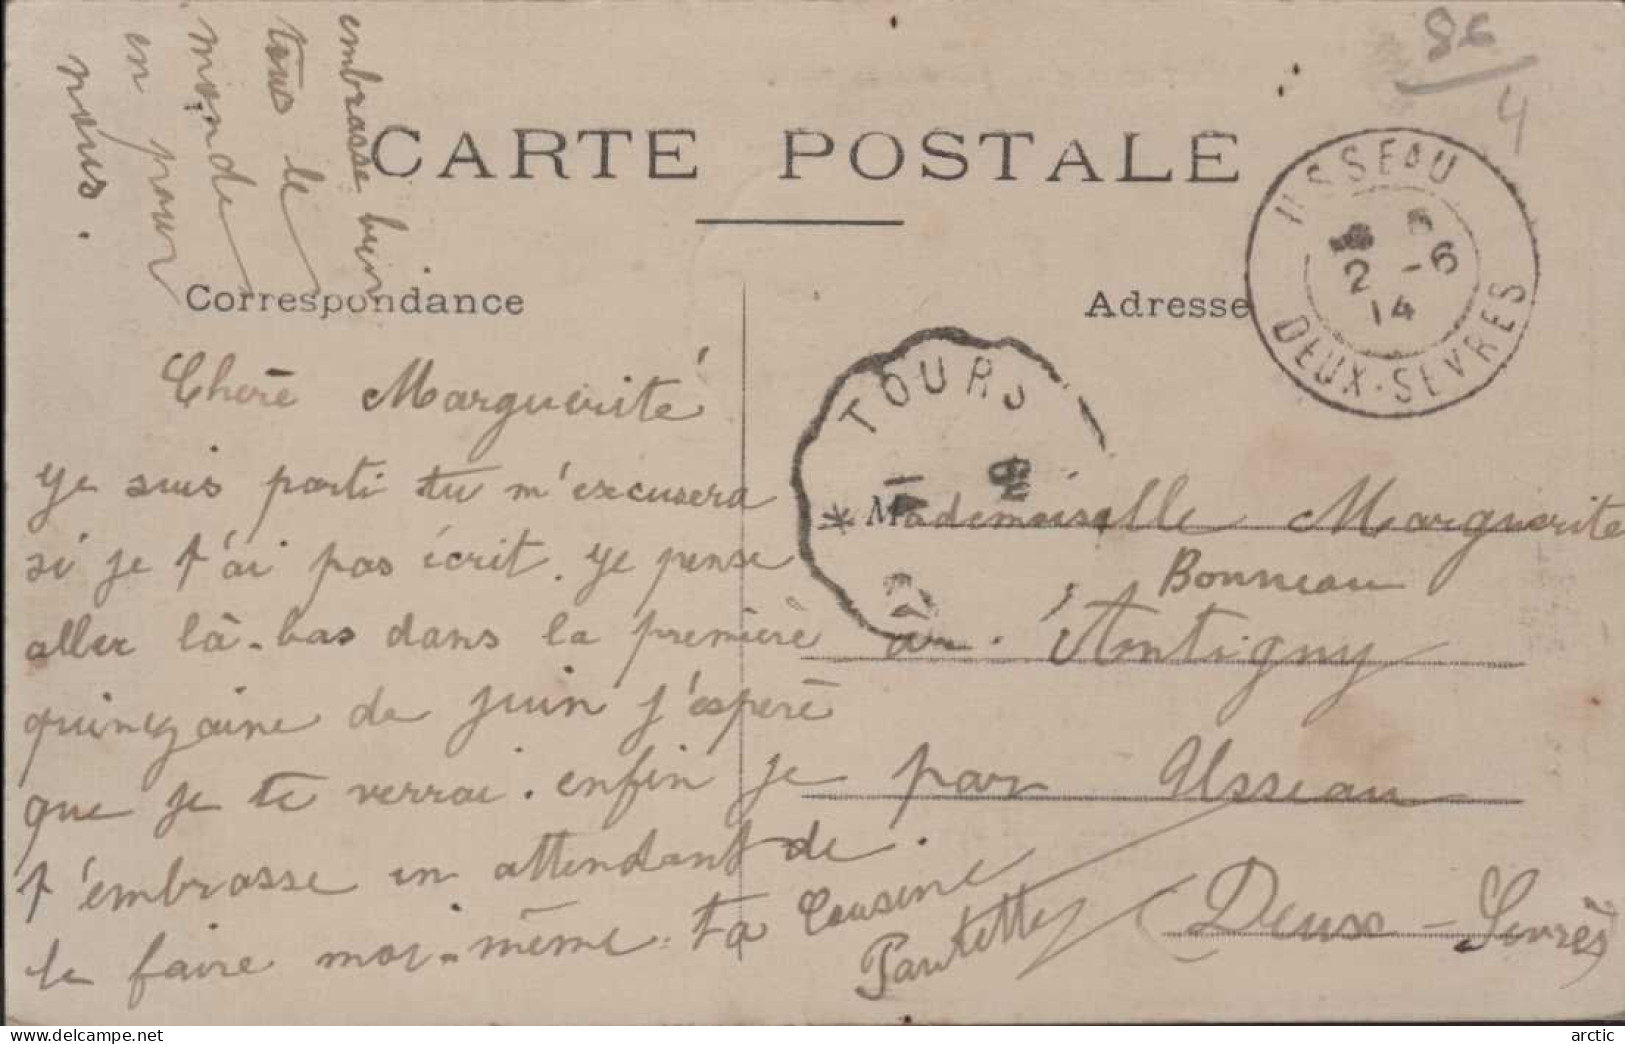 embrasse bien
tous le
monde
en pour
nous.
86
4
CARTE POSTALE
Correspondance
Adresse
USSEAU
2 -6
14
DEUX-SEVRES
TOURS
Cherè Marguerité
Je suis parti tu m'excusera
si je t'ai pas écrit. Je pense
aller là-bas dans la premièrè
quinzaine de juin j'esperè
que je te verrai. enfin je
t'embrasse en attendant de
le faire moi-même. Ta Cousine
Paulette
Mademoiselle Marguerite
Bonneau
à Antigny
par Usseau
Deux-Sevrès
www.delcampe.net
arctic